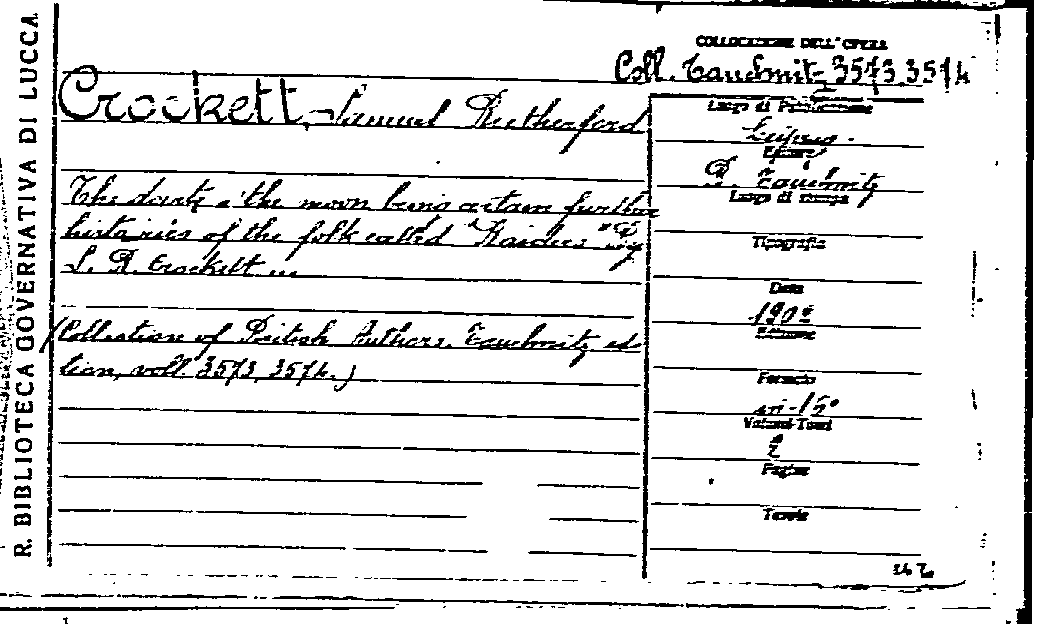 R. BIBLIOTECA GOVERNATIVA DI LUCCA
COLLOCAZIONE DELL'OPERA
Coll. Tauchnitz 3573.3574
Crockett, Samuel Rutherford
The dark o' the moon being certain further
histories of the folk called "Raiders" By
S. R. Crockett ...
(Collection of British Authors. Tauchnitz edi
tion, voll. 3573, 3574.)
Luogo di Pubblicazione
Leipzig.
Editore
B. Tauchnitz
Luogo di stampa
Tipografia
Data
1902
Edizione
Formato
in-15°
Volumi-Tomi
2
Pagine
Tavole